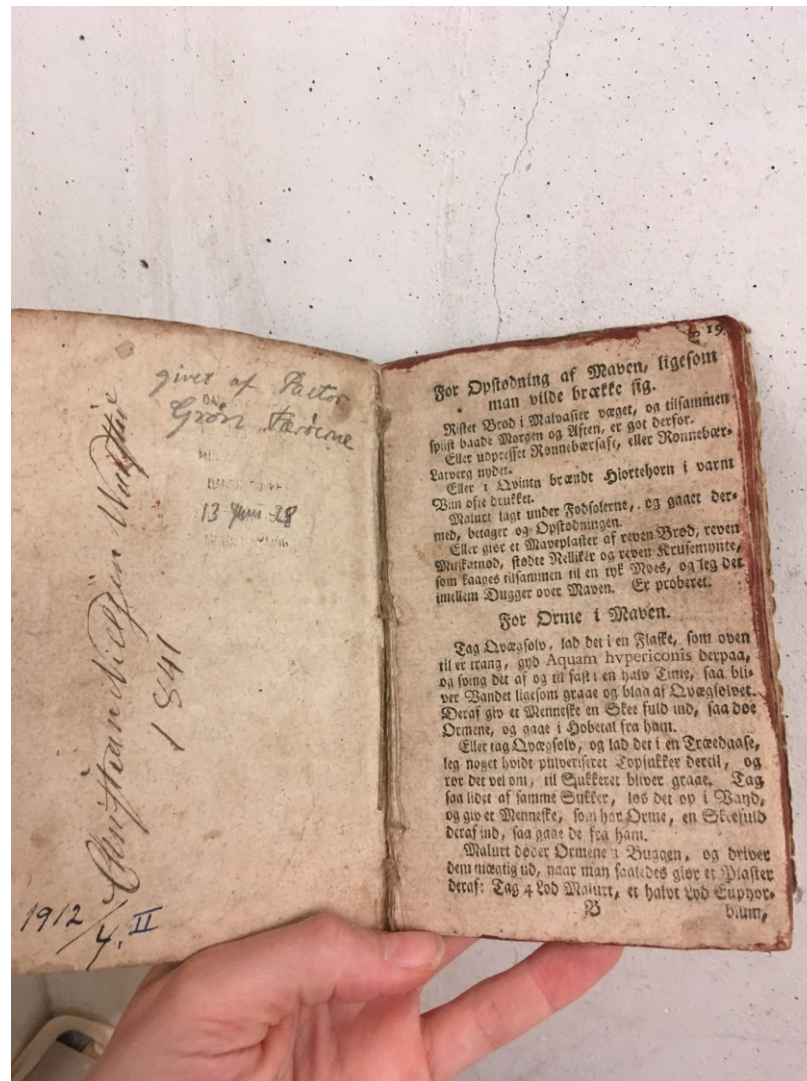 givet af Pastor
Grøn Færöerne
13 Juni 28
Christian Nielsen
1841
1912/4. II
19.
For Opstødning af Maven, ligesom
man vilde brække sig.
Ristet Brød i Malvasier væget, og tilsammen
spiist baade Morgen og Aften, er got derfor.
Eller udpresset Rønnebærsaft, eller Rønnebær-
Latverg nydet.
Eller 1 Qvintn brændt Hjortehorn i varm
Viin ofte drukket.
Malurt lagt under Fodsolerne, og gaaet der-
med, betager og Opstødningen.
Eller giør et Maveplaster af reven Brød, reven
Muskatnød, stødte Nelliker og reven Krusemynte,
som kaages tilsammen til en tyk Moes, og leg det
imellem Dugger over Maven. Er proberet.
For Orme i Maven.
Tag Qvægsølv, lad det i en Flaske, som oven
til er trang, gyd Aquam hypericonis derpaa,
og sving det af og til fast i en halv Time, saa bli-
ver Vandet ligesom graae og blaa af Qvægsølvet.
Deraf giv et Menneske en Skee fuld ind, saa døe
Ormene, og gaae i Hobetal fra ham.
Eller tag Qvægsølv, og lad det i en Træedaase,
leg noget hvidt pulveriseret Topsukker dertil, og
rør det vel om, til Sukkeret bliver graae. Tag
saa lidet af samme Sukker, løs det op i Vand,
og giv et Menneske, som har Orme, en Skeefuld
deraf ind, saa gaae de fra ham.
Malurt døder Ormene i Buggen, og driver
dem mægtig ud, naar man saaledes giør et Plaster
deraf: Tag 4 Lod Malurt, et halvt Lod Euphor-
B
bium,